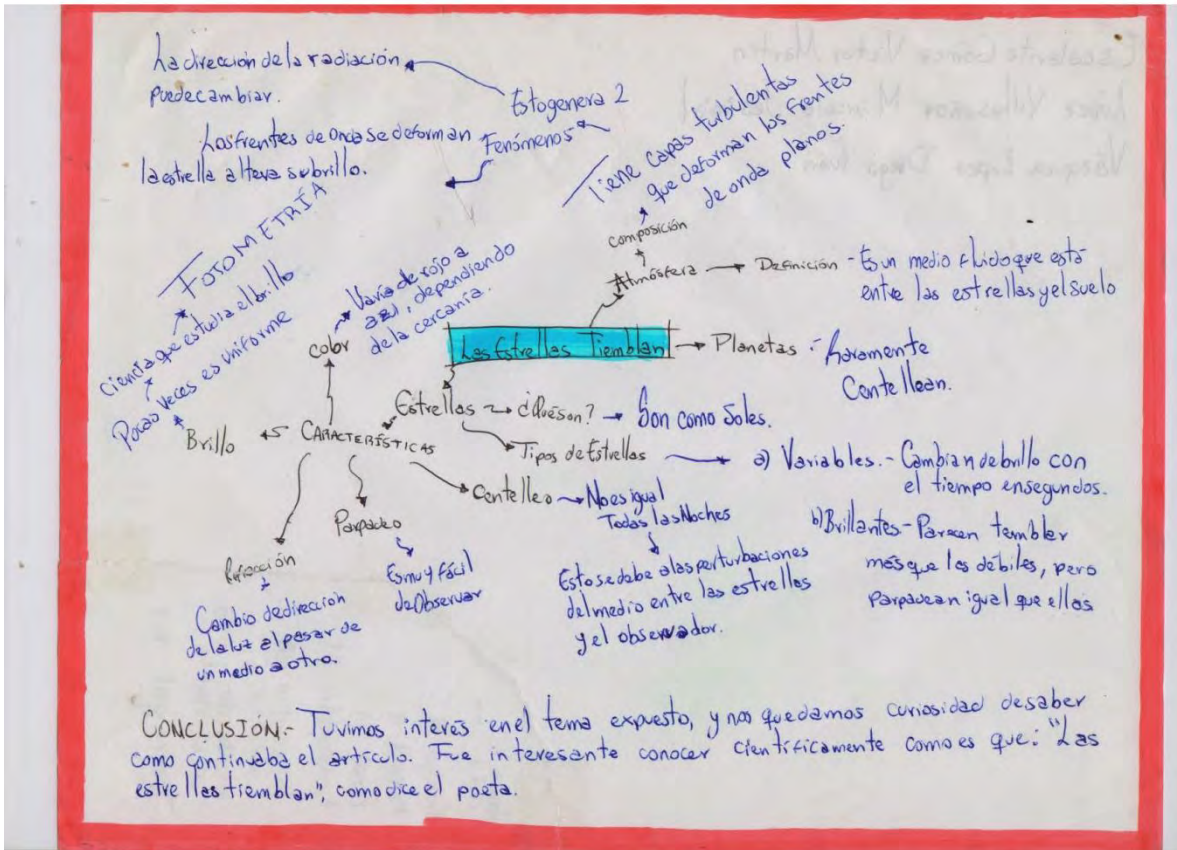 La dirección de la radiación
puede cambiar.
Esto genera 2
Fenómenos
Los frentes de onda se deforman
la estrella altera su brillo.
Tiene capas turbulentas
que deforman los frentes
de onda planos.
composición
Atmósfera
Definición - Es un medio fluido que está
entre las estrellas y el suelo
FOTOMETRÍA
Ciencia que estudia el brillo
Pocas veces es uniforme
Brillo
color
Varía de rojo a
azul, dependiendo
de la cercanía.
Las Estrellas Tiemblan
Planetas - Raramente
Centellean.
Estrellas
¿Qué son?
Son como Soles.
CARACTERÍSTICAS
Tipos de Estrellas
a) Variables.- Cambian de brillo con
el tiempo en segundos.
b) Brillantes- Parecen temblar
más que las débiles, pero
parpadean igual que ellas
Centelleo
No es igual
Todas las Noches
Esto se debe a las perturbaciones
del medio entre las estrellas
y el observador.
Parpadeo
Es muy fácil
de Observar
Refracción
Cambio de dirección
de la luz al pasar de
un medio a otro.
CONCLUSIÓN.- Tuvimos interés en el tema expuesto, y nos quedamos curiosidad de saber
como continuaba el artículo. Fue interesante conocer científicamente como es que: "Las
estrellas tiemblan", como dice el poeta.